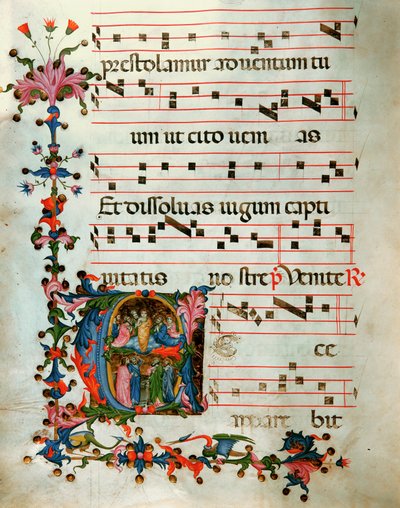 prestolamur adventum tu
um ut cito veni as
Et dissolvas iugum capti
vitatis no stre p̄ Venite R̄
E cce
apparebit